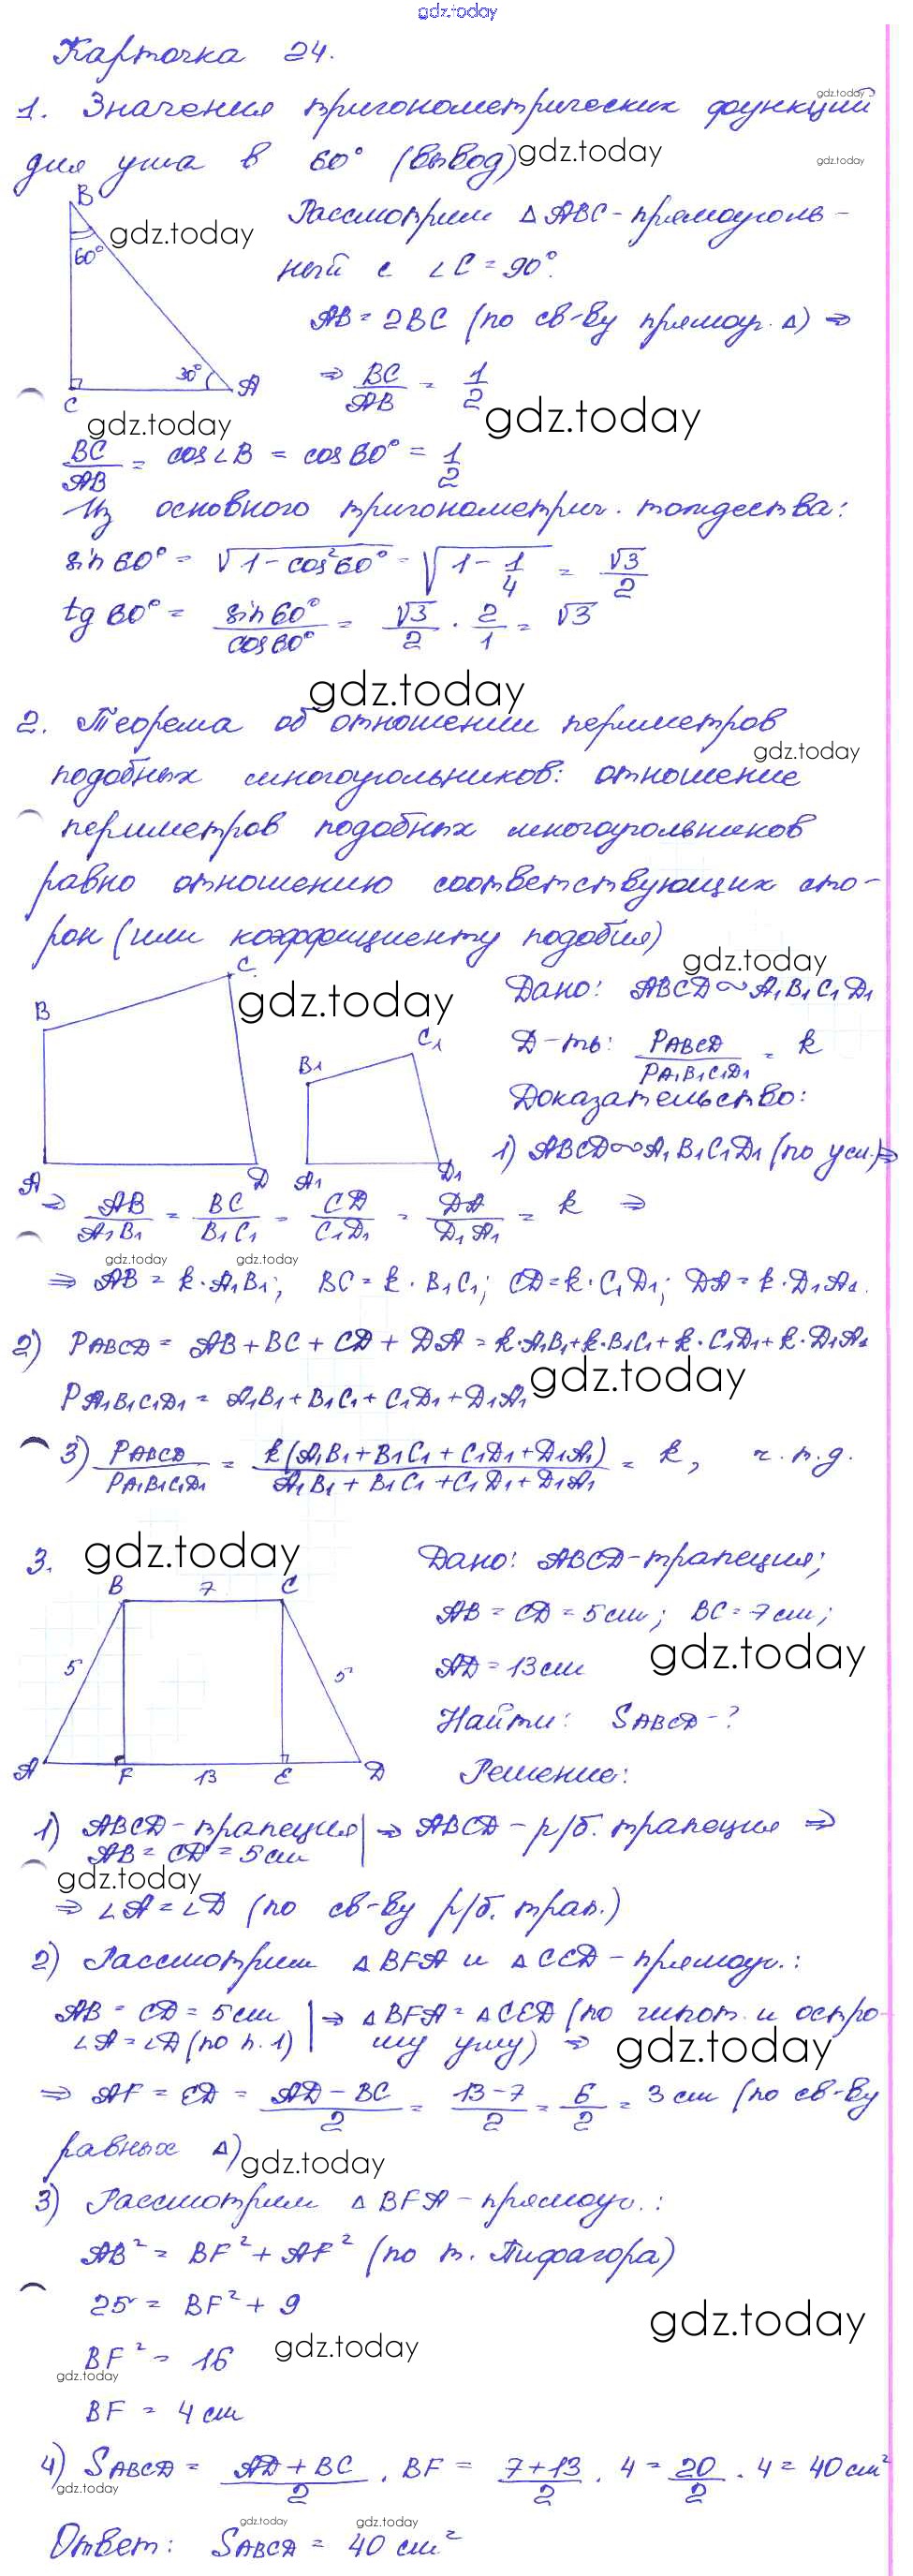 gdz.today
Карточка 24.
1. Значения тригонометрических функций
для угла в 60° (вывод)
Рассмотрим △ABC - прямоуголь-
ный с ∠C = 90°.
AB = 2BC (по св-ву прямоуг. △) ⇒
⇒ BC/AB = 1/2
B 60° 30° A C
BC/AB = cos∠B = cos60° = 1/2
Из основного тригонометрич. тождества:
sin60° = √(1-cos²60°) = √(1-1/4) = √3/2
tg60° = sin60°/cos60° = √3/2 · 2/1 = √3
gdz.today
2. Теорема об отношении периметров
подобных многоугольников: отношение
периметров подобных многоугольников
равно отношению соответствующих сто-
рон (или коэффициенту подобия)
A B C D
A₁ B₁ C₁ D₁
Дано: ABCD ∾ A₁B₁C₁D₁
Д-ть: PABCD/PA₁B₁C₁D₁ = k
Доказательство:
1) ABCD ∾ A₁B₁C₁D₁ (по усл.) ⇒
⇒ AB/A₁B₁ = BC/B₁C₁ = CD/C₁D₁ = DA/D₁A₁ = k ⇒
⇒ AB = k·A₁B₁; BC = k·B₁C₁; CD = k·C₁D₁; DA = k·D₁A₁.
2) PABCD = AB + BC + CD + DA = k·A₁B₁+k·B₁C₁+k·C₁D₁+k·D₁A₁
PA₁B₁C₁D₁ = A₁B₁+B₁C₁+C₁D₁+D₁A₁
3) PABCD/PA₁B₁C₁D₁ = k(A₁B₁+B₁C₁+C₁D₁+D₁A₁)/A₁B₁+B₁C₁+C₁D₁+D₁A₁ = k, ч.т.д.
gdz.today
3. Дано: ABCD - трапеция;
AB = CD = 5 см; BC = 7 см;
AD = 13 см
Найти: SABCD - ?
Решение:
B 7 C 5 5 A F 13 E D
1) ABCD - трапеция | ⇒ ABCD - р/б. трапеция ⇒
AB = CD = 5 см
⇒ ∠A = ∠D (по св-ву р/б. трап.)
2) Рассмотрим △BFA и △CED - прямоуг.:
AB = CD = 5 см | ⇒ △BFA = △CED (по гипот. и остро-
∠A = ∠D (по п. 1) | му углу) ⇒
⇒ AF = ED = AD - BC/2 = 13-7/2 = 6/2 = 3 см (по св-ву
равных △)
3) Рассмотрим △BFA - прямоуг.:
AB² = BF² + AF² (по т. Пифагора)
25 = BF² + 9
BF² = 16
BF = 4 см
4) SABCD = AD + BC/2 · BF = 7+13/2 · 4 = 20/2 · 4 = 40 см²
Ответ: SABCD = 40 см²